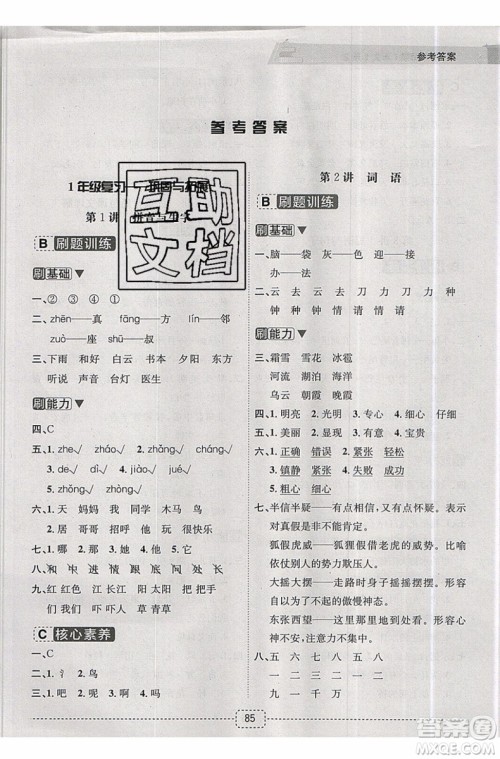 参考答案
参考答案
1年级复习 巩固与拓展
第1讲 拼音与生字
B 刷题训练
刷基础
一、② ③ ④ ①
二、zhēn——真 fāng——方 lín——林
zuò——座 shū——叔
三、下雨 和好 白云 本书 夕阳 东方
听说 声音 台灯 医生
刷能力
四、C
五、1.zhe√ zháo√ 2.zhǎng√ cháng√
3.le√ liǎo√ 4.zhǒng√
zhòng√
六、1.天 妈妈 我 同学 木马 鸟
2.居 居 哥 招呼 他 快乐
七、1.都 2.首 3.也 4.加 5.这
八、红 红色 江 江河 阳 太阳 把 把手
们 我们 吓 吓人 草 青草
C 核心素养
一、C
二、1.氵 2.鸟
三、1.吧 2.呢 3.啊 4.吗
第2讲 词语
B 刷题训练
刷基础
一、脑——袋 灰——色 迎——接
办——法
二、云 去 云 去 刀 力 刀 力
钟 种 钟 种 情 请 情 请
刷能力
三、霜雪 雪花 冰雹
河流 湖泊 海洋
乌云 朝霞 晚霞
四、1.明亮 2.光明 3.专心 4.细心 仔细
五、1.美丽 2.显现 3.有名 4.宝贵
六、1.清楚 模糊 2.浓 淡 3.轻松 紧张
4.镇静 紧张 5.失败 成功
6.粗心 细心
七、半信半疑——有点相信,又有点怀疑。表示
对真假是非不能肯定。
狐假虎威——狐狸假借老虎的威势。比喻
依仗别人的势力欺压人。
大摇大摆——走路时身子摇摇摆摆。形容
自以为了不起的傲慢样子。
东张西望——这里那里地到处看。形容心
神不定,注意力不集中。
八、五 六 七 八 七 八
一 二 三 四 三 四
九 一 千 万
85